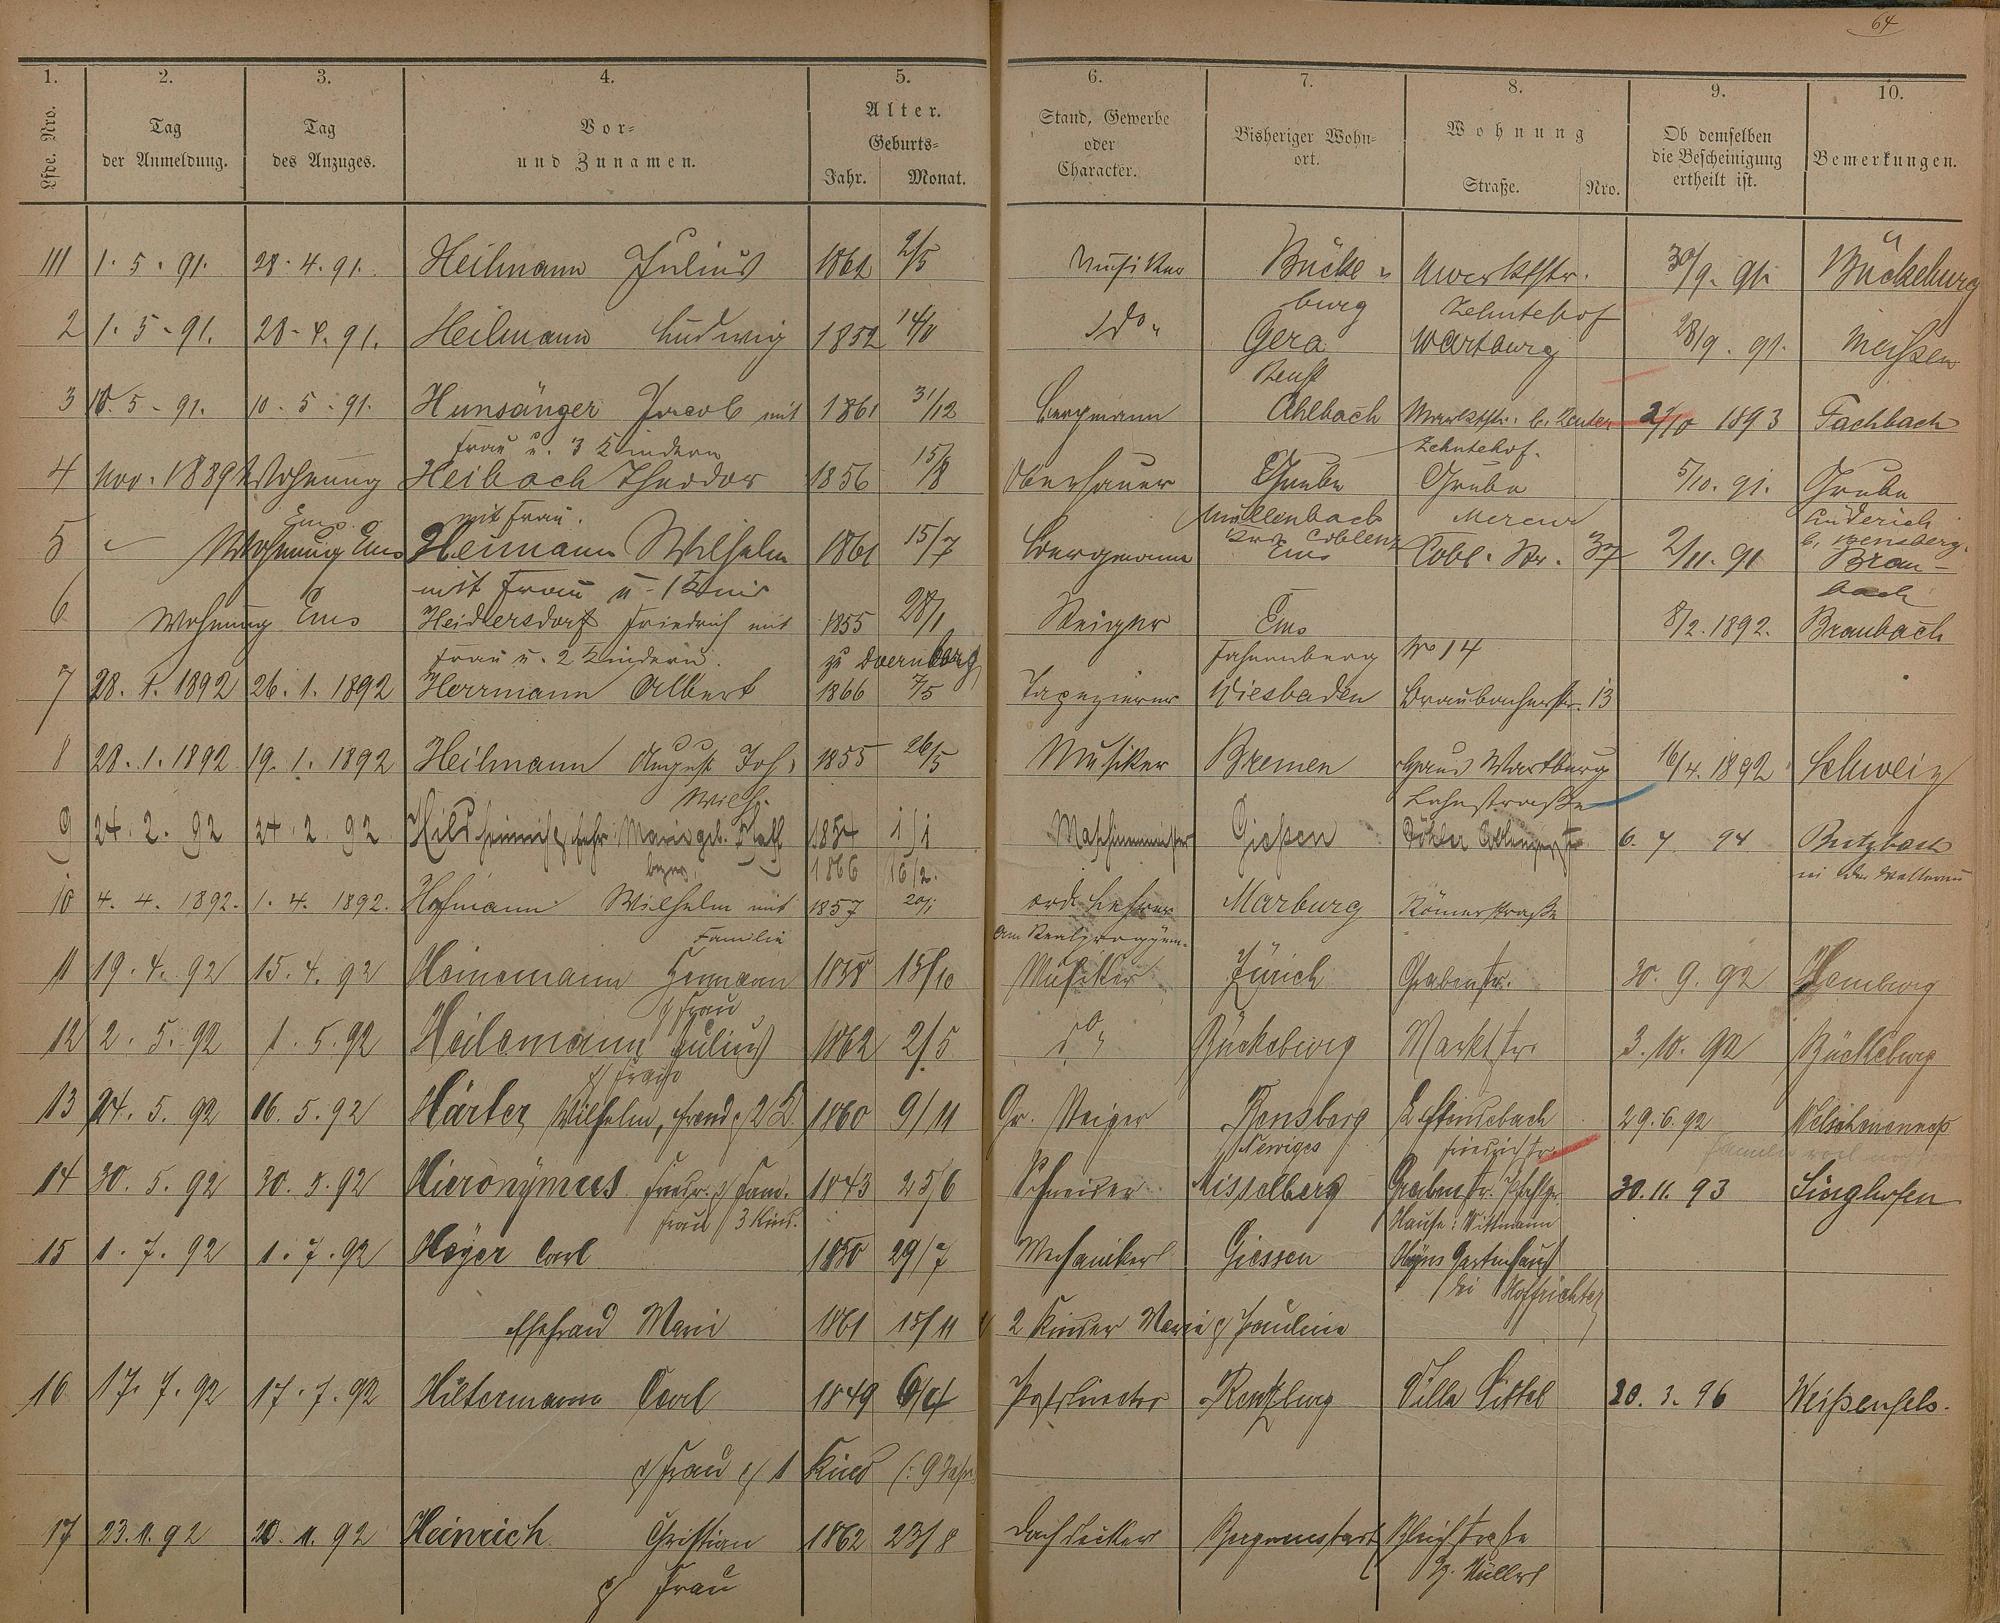 64
1. 2. 3. 4. 5. 6. 7. 8. 9. 10.
Lfde. Nro. Tag der Anmeldung. Tag des Anzuges. Vor- und Zunamen. Alter. Geburts- Jahr. Monat. Stand, Gewerbe oder Character. Bisheriger Wohnort. Wohnung Straße. Nro. Ob demselben die Bescheinigung ertheilt ist. Bemerkungen.
111 1. 5. 91. 28. 4. 91. Heilmann Julius 1862 2/5 Musiker Bücke- Marktstr. 30/9. 91. Bückeburg
burg Zehntehof
2 1. 5. 91. 28. 4. 91. Heilmann Ludwig 1852 14/8 do Gera Wartburg 28/9. 91. Meißen
Reuß
3 10. 5. 91. 10. 5. 91. Hunsänger Jacob mit 1861 31/12 Bergmann Ahlbach Marktstr. 1893 Fachbach
Frau u. 3 Kindern Zehntehof.
4 Nov. 1889 Wohnung Heibach Theodor 1856 15/8 Oberhauer Grube Grube 5/10. 91. Grube
Ems. mit Frau. Müllenbach Mercur Lüderich
Krs. Coblenz b. Bensberg.
5 Wohnung Ems Heimann Wilhelm 1861 15/7 Bergmann Ems Cobl. Str. 37 2/11. 91 Brau-
mit Frau u. 1 Kind bach
6 Wohnung Ems Heidersdorf Friedrich mit 1855 28/1 Steiger Ems 8/2. 1892. Braubach
Frau u. 2 Kindern. zu Fahnenberg No 14
7 28. 1. 1892 26. 1. 1892 Herrmann Albert 1866 7/5 Tapezierer Wiesbaden Braubacherstr. 13
8 28. 1. 1892 19. 1. 1892 Heilmann August Joh. 1855 26/5 Musiker Bremen Haus Wartburg 16/4. 1892 Schweiz
Wilh. Lahnstraße
9 24. 2. 92 24. 2. 92 Hild Heinrich Marie geb. 1854 1/1 Maschinenmeister Gießen 6. 7 94 Butzbach
1866 16/2. in der Wetterau
10 4. 4. 1892. 1. 4. 1892. Hofmann Wilhelm mit 1857 20/1 ord. Lehrer Marburg Römerstraße
Familie am Realprogym.
11 19. 4. 92 15. 4. 92 Heinemann Hermann 1858 15/10 Musiker Zürich Grabenstr. 30. 9. 92 Hamburg
Frau
12 2. 5. 92 1. 5. 92 Heilemann Julius 1862 2/5 do Bückeburg Marktstr. 3. 10. 92 Bückeburg
Frau
13 24. 5. 92 16. 5. 92 Härter Wilhelm, Frau & 2 K. 1860 9/11 Gr. Steiger Bensberg 29. 6. 92
14 30. 5. 92 30. 5. 92 Hieronymus Friedr. & Fam. 1843 25/6 Schneider Misselberg Grabenstr. 30. 11. 93 Singhofen
Frau 3 Kind. Hause: Wittmann
15 1. 7. 92 1. 7. 92 Heyer Carl 1850 29/7 Mechaniker Giessen Gartenhaus
bei Hofrichter
Ehefrau Marie 1861 15/11 2 Kinder Marie & Pauline
16 17. 7. 92 17. 7. 92 Hiltermann Carl 1849 Postdirector Rendsburg Villa Sittel 20. 3. 96 Weißenfels.
& Frau & 1 Kind (: 9 Jahr
17 23. 11. 92 20. 11. 92 Heinrich Christian 1862 23/8 Dachdecker Bleichstraße
& Frau